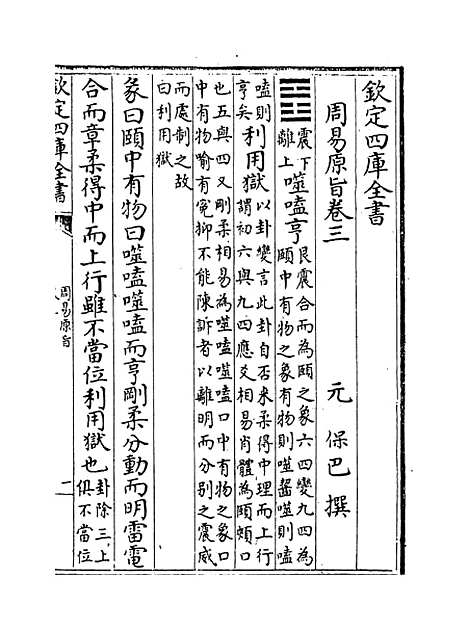 欽定四庫全書
周易原旨卷三
元 保巴 撰
震下離上噬嗑亨艮震合而為頤之象六四變九四為頤中有物之象有物則噬齧噬則嗑
嗑則亨矣利用獄以卦變言此卦自否來柔得中理而上行謂初六與九四應爻相易肖體為頤頰口
也五與四又剛柔相易為噬嗑噬嗑口中有物之象口中有物喻有冤抑不能陳訴者以離明而分别之震威
而處制之故曰利用獄
彖曰頤中有物曰噬嗑噬嗑而亨剛柔分動而明雷電
合而章柔得中而上行雖不當位利用獄也卦除三上俱不當位
欽定四庫全書
周易原旨
二